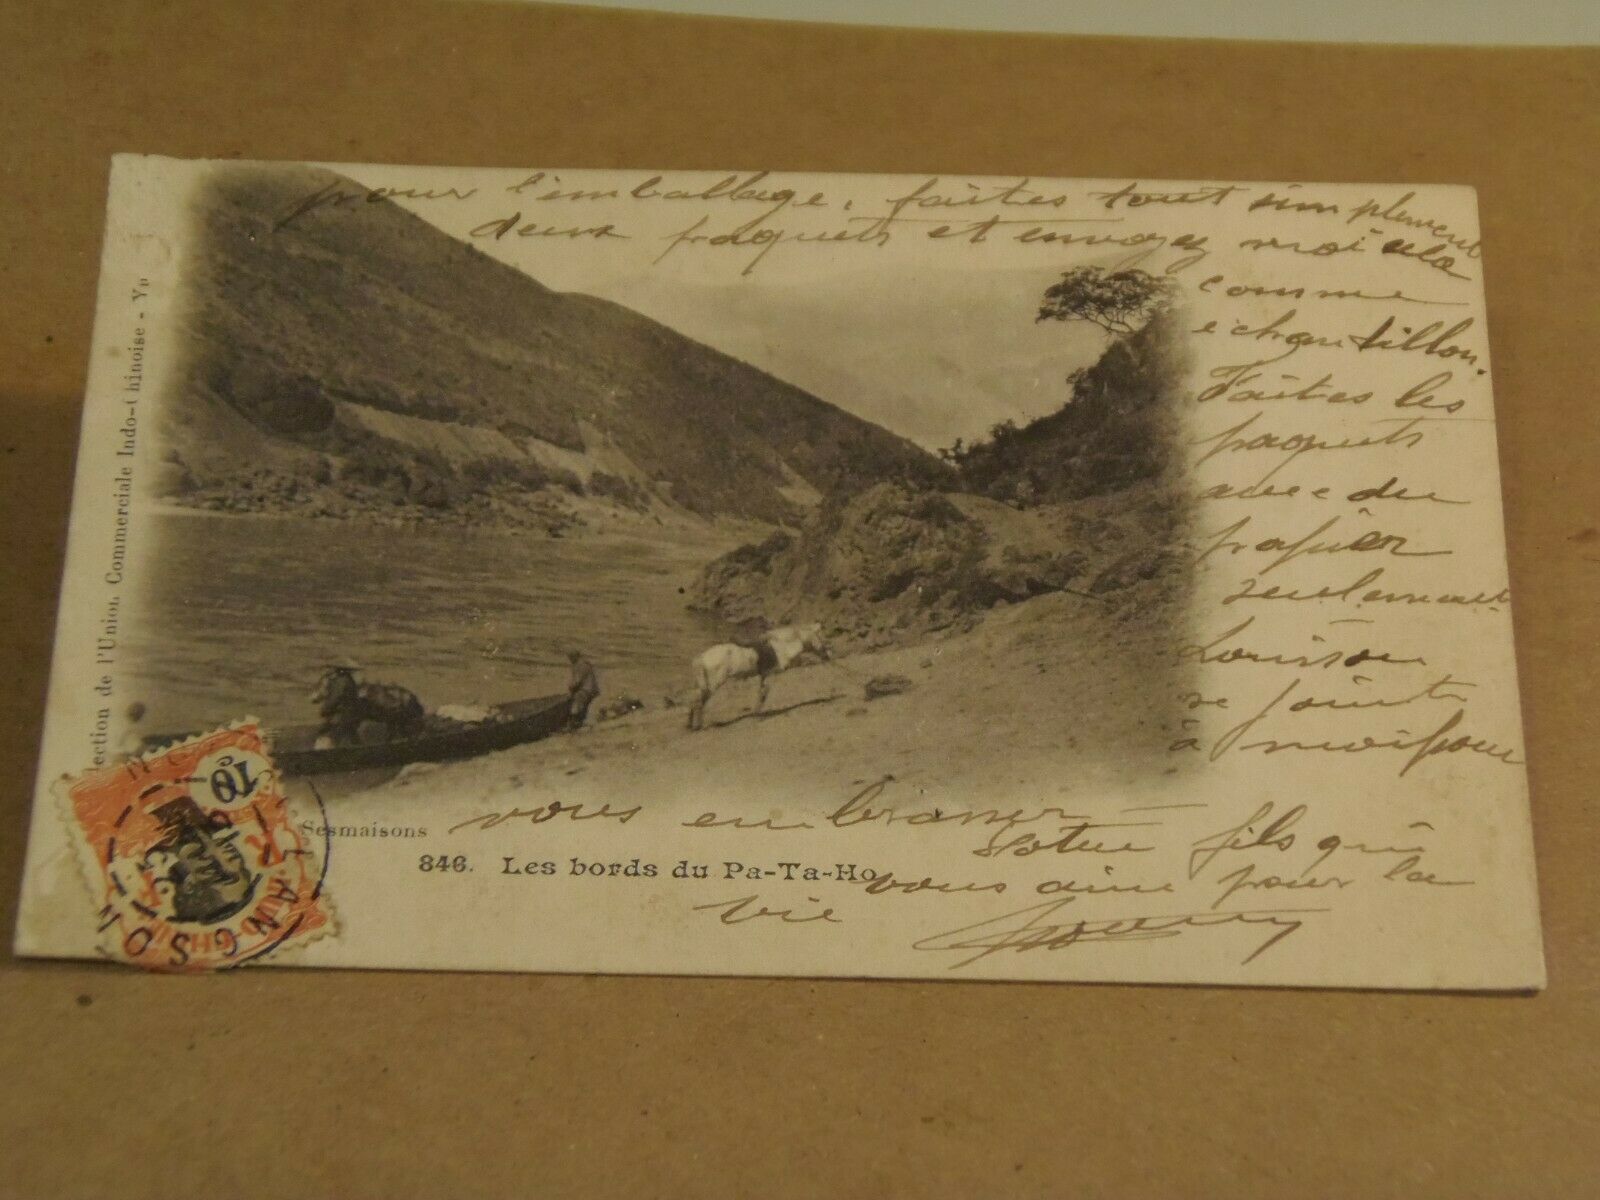 pour l'emballage, faites tout simplement
deux paquets et envoyez moi cela
comme
echantillon.
Faites les
paquets
avec du
papier
seulement
Louison
se joint
à moi pour
vous embrasser
Votre fils qui
vous aime pour la
vie
lection de l'Union Commerciale Indo-Chinoise - Yu
Sesmaisons
846. Les bords du Pa-Ta-Ho
10
LANG SON